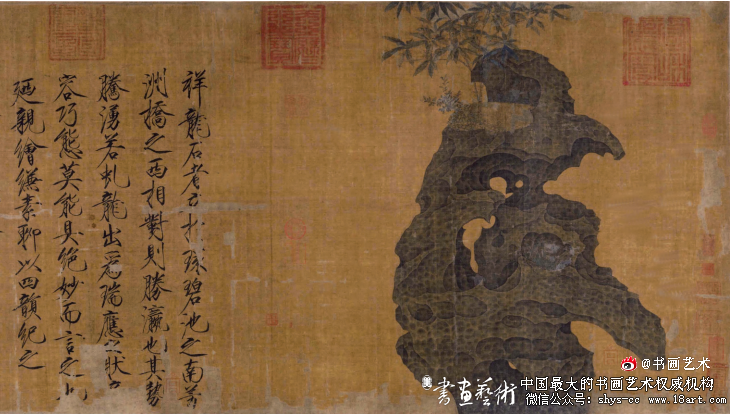 祥龍石者立於環碧池之南芳
洲橋之西相對則勝瀛也其勢
騰湧若虬龍出為瑞應之狀奇
容巧態莫能具絕妙而言之也
廼親繪縑素聊以四韻紀之
書畫藝術
@书画艺术
中国最大的书画艺术权威机构
微信公众号: shys-cc www.18art.com